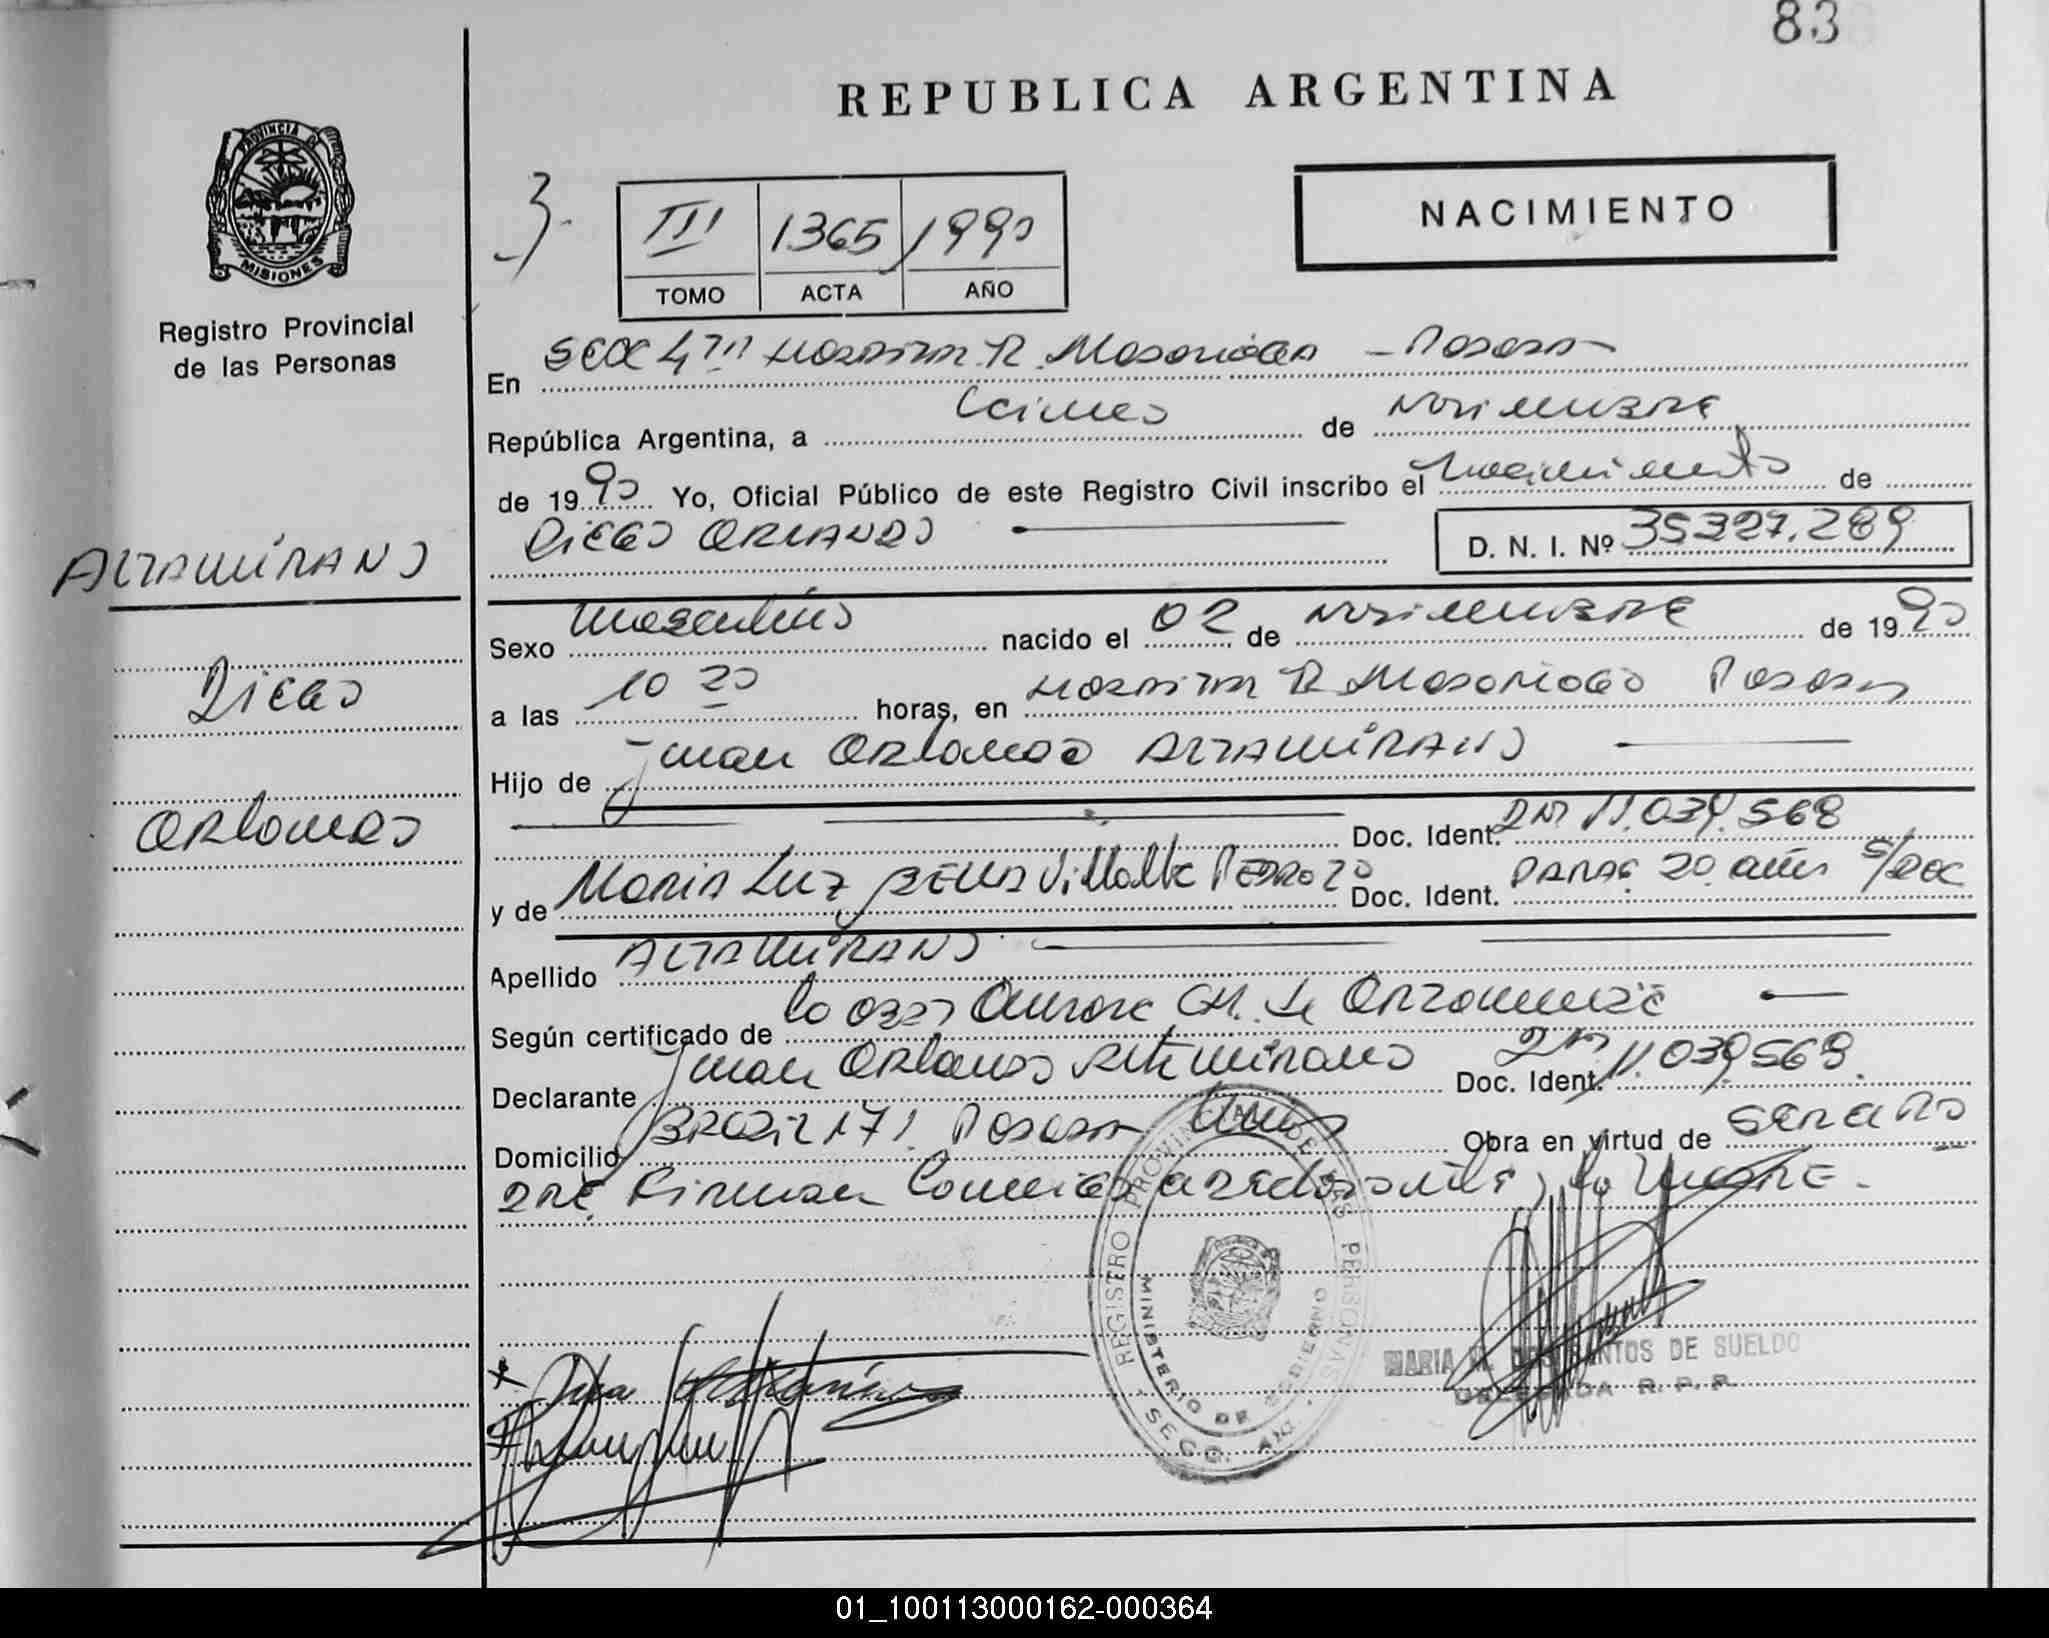 83
REPUBLICA ARGENTINA
PROVINCIA DE
MISIONES
Registro Provincial
de las Personas
3.
III 1365 1990
TOMO ACTA AÑO
NACIMIENTO
En Secc 4ta Hospital R. Madariaga - Posadas
República Argentina, a Cinco de Noviembre
de 1990 Yo, Oficial Público de este Registro Civil inscribo el Nacimiento de
DIEGO ORLANDO D. N. I. Nº 35327.289
ALTAMIRANO
Diego
Orlando
Sexo Masculino nacido el 02 de Noviembre de 1990
a las 10 20 horas, en Hospital R Madariaga Posadas
Hijo de Juan Orlando ALTAMIRANO
Doc. Ident. DNI 11.039.568
y de Maria Luz Bella Villalba Pedrozo Doc. Ident. PARAG. 20 años S/Doc
Apellido ALTAMIRANO
Según certificado de la Aurora CH. de
Declarante Juan Orlando Altamirano Doc. Ident. DNI 11.039.568.
Domicilio 171 Posadas Obra en virtud de
Firman Conmigo la Madre.
REGISTRO PROVINCIAL DE LAS PERSONAS
MINISTERIO DE GOBIERNO
MARIA DOS SANTOS DE SUELDO
DELEGADA R. P. P.
01_100113000162-000364